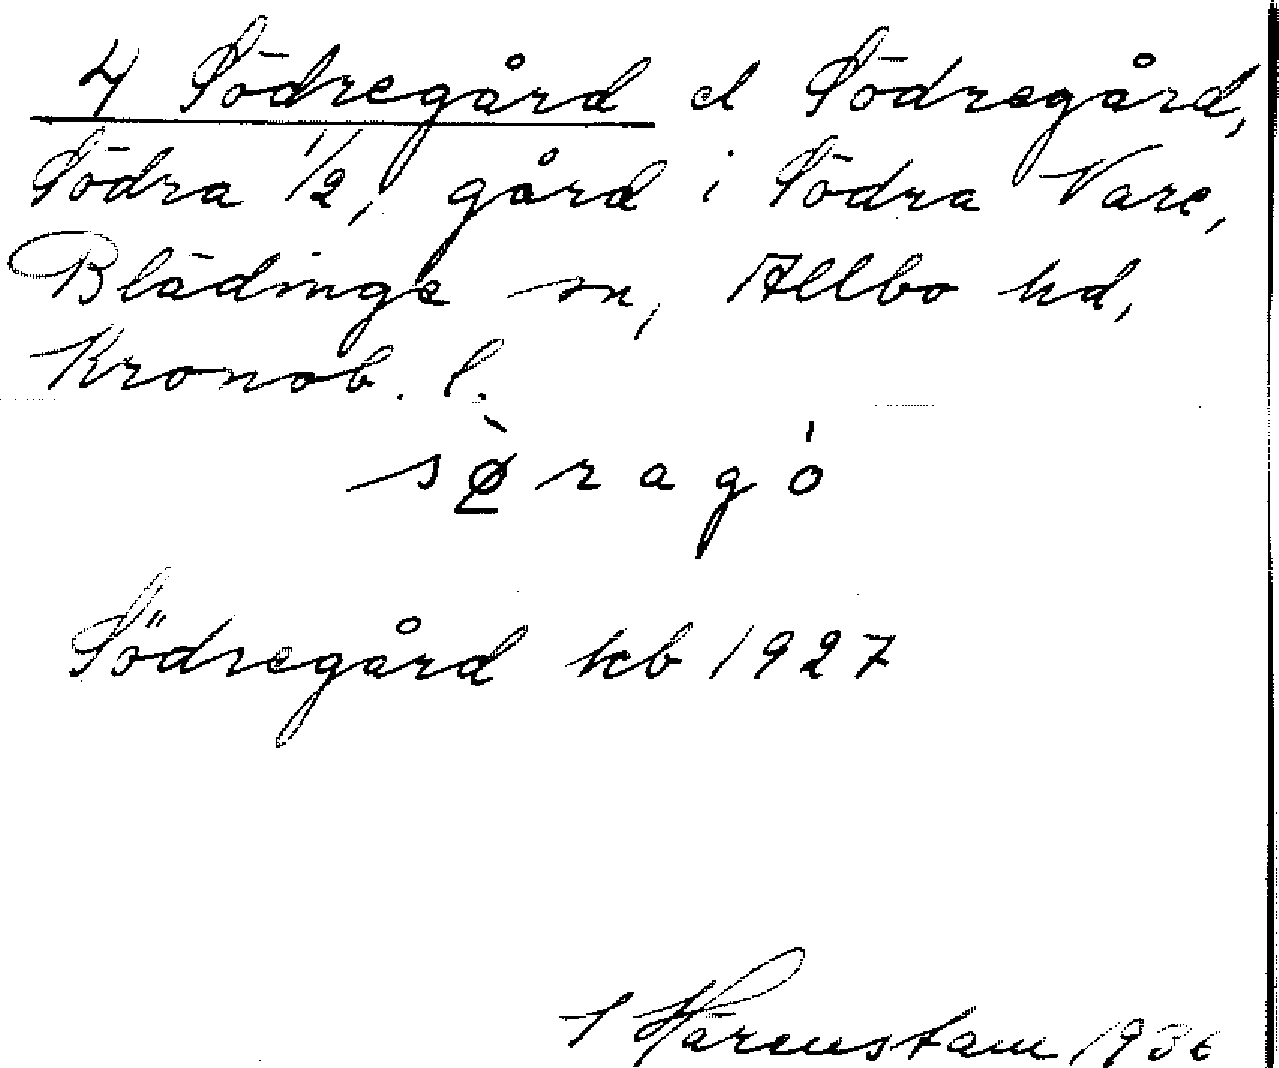 4 Södregård el Södregård,
Södra 1/2, gård i Södra Vare,
Blädinge sn, Allbo hd,
Kronob. l.
sø̀ragó
Södregård kb 1927
S Härenstam 1936